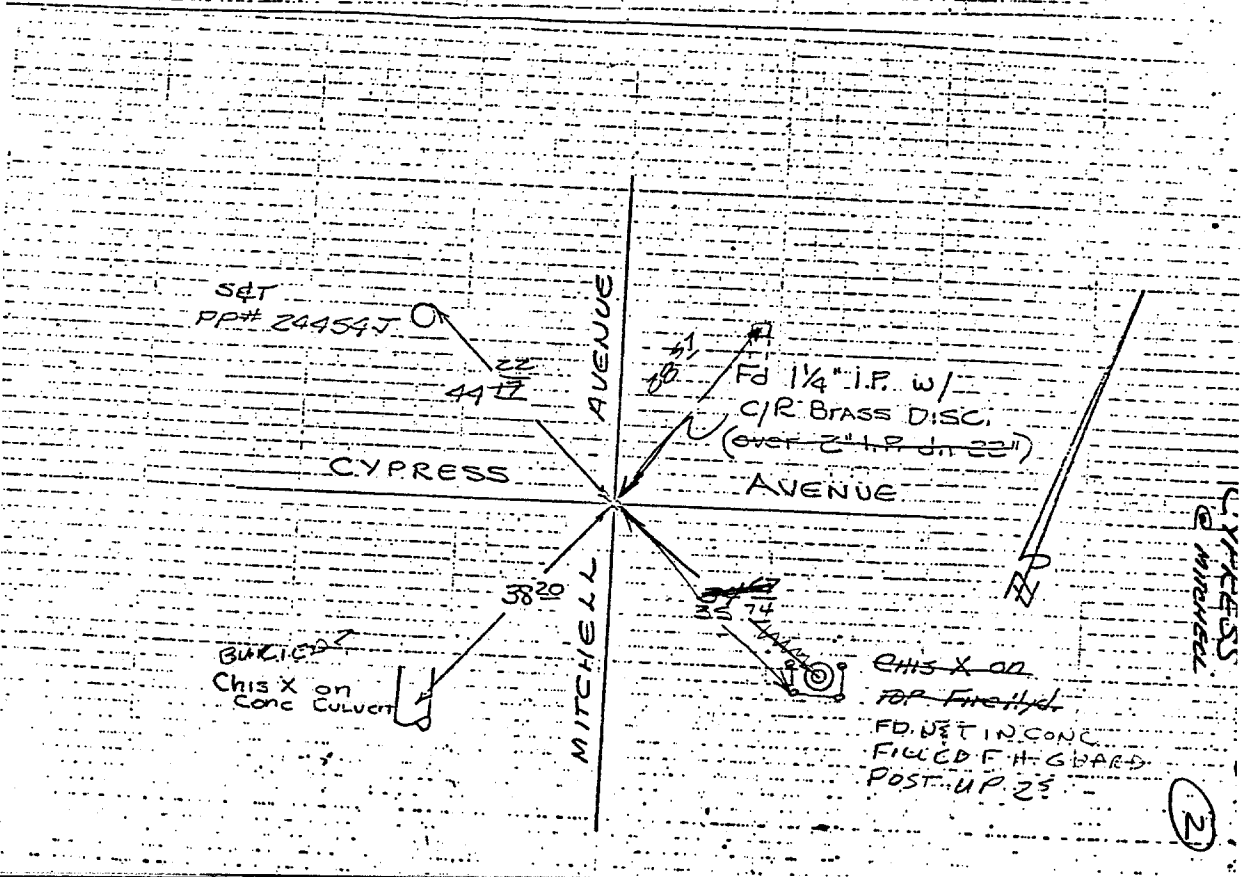 S&T
PP# 24454J
44 22
17
AVENUE
Fd 1¼" I.P. w/
C/R BRASS DISC.
(over 2" I.P. dn 22")
CYPRESS
AVENUE
38 20
74
MITCHELL
BURIED
Chis X on
Conc Culvert
Chis X on
TOP Fire Hyd.
FD. N&T IN CONC
FILLED F.H. GUARD
POST UP 2 5
CYPRESS
@ MITCHELL
2